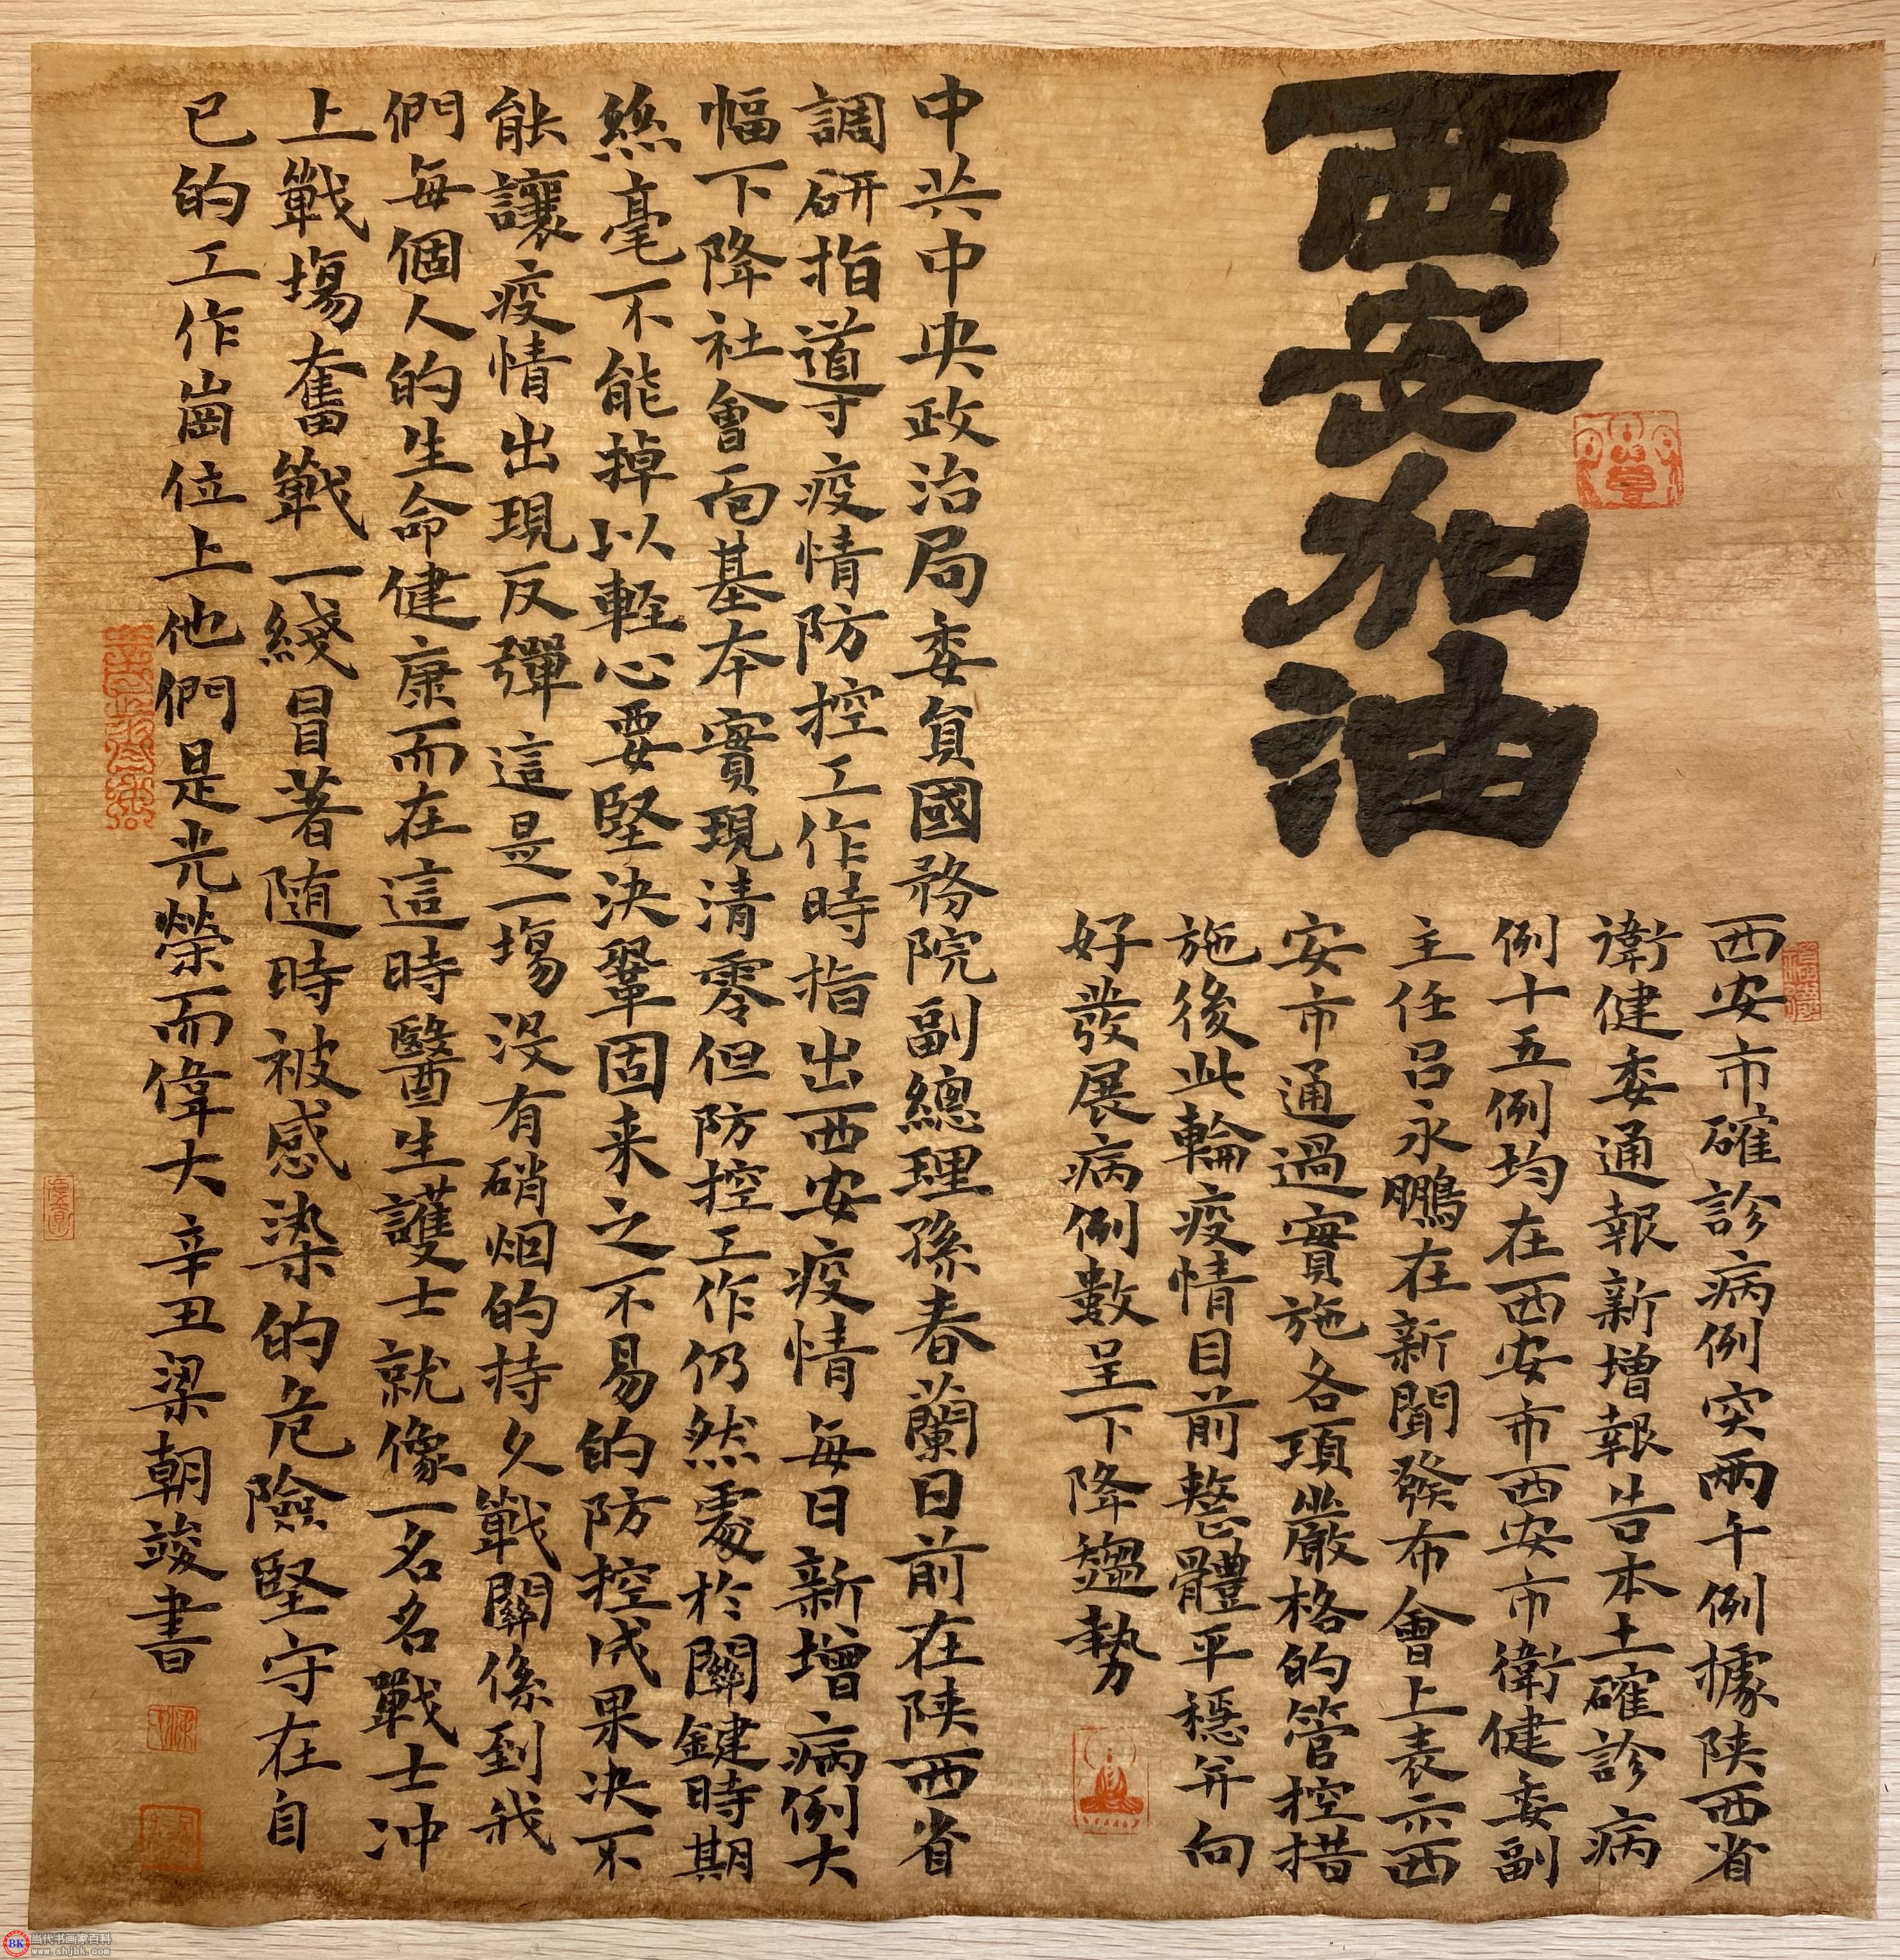 西安加油
西安市確診病例突兩千例據陝西省
衛健委通報新增報告本土確診病
例十五例均在西安市西安市衛健委副
主任吕永鵬在新聞發布會上表示西
安市通過實施各項嚴格的管控措
施後此輪疫情目前整體平穩并向
好發展病例數呈下降趨勢
中共中央政治局委員國務院副總理孫春蘭日前在陝西省
調研指導疫情防控工作時指出西安疫情每日新增病例大
幅下降社會面基本實現清零但防控工作仍然處於關鍵時期
絲毫不能掉以輕心要堅決鞏固来之不易的防控成果决不
能讓疫情出現反彈這是一場没有硝烟的持久戰關係到我
們每個人的生命健康而在這時醫生護士就像一名名戰士冲
上戰場奮戰一綫冒著随時被感染的危險堅守在自
已的工作崗位上他們是光榮而偉大辛丑梁朝竣書
BK 当代书画家百科
www.shjbk.com